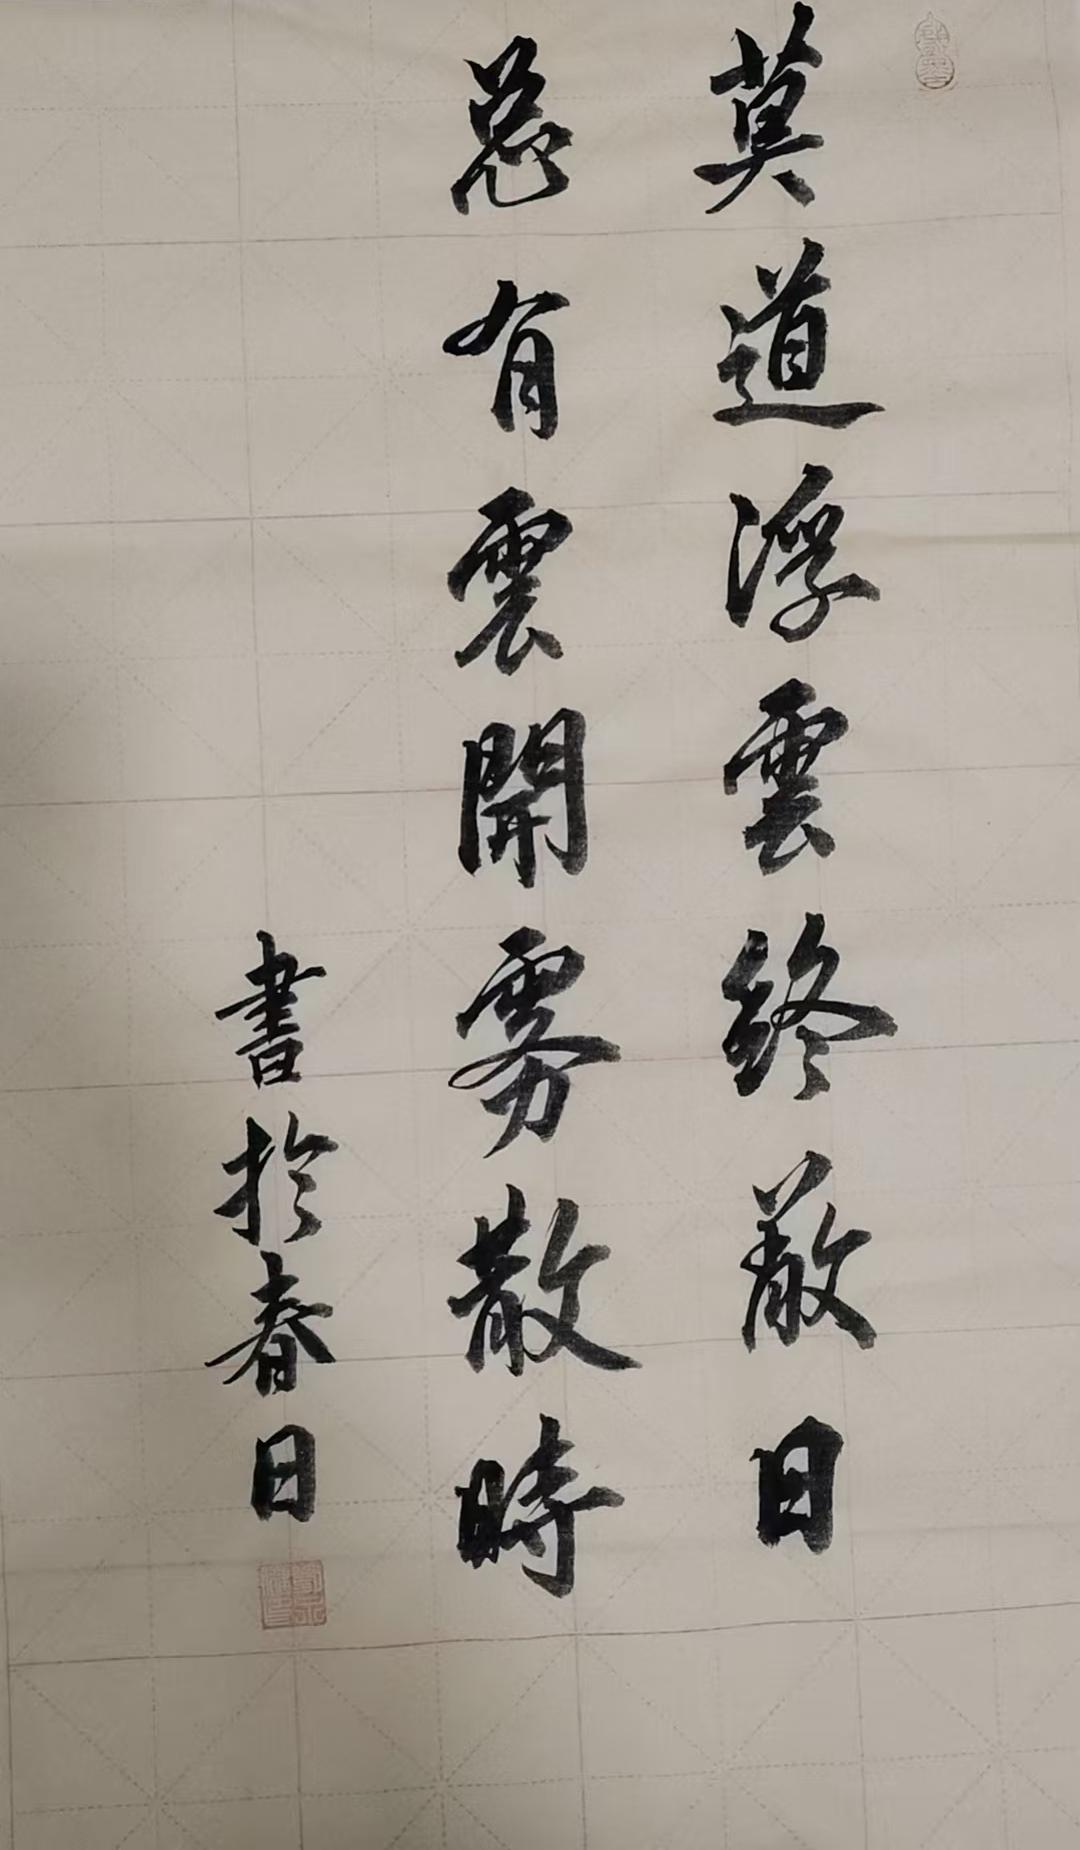 莫道浮雲終蔽日
总有雲開雾散時
書於春日